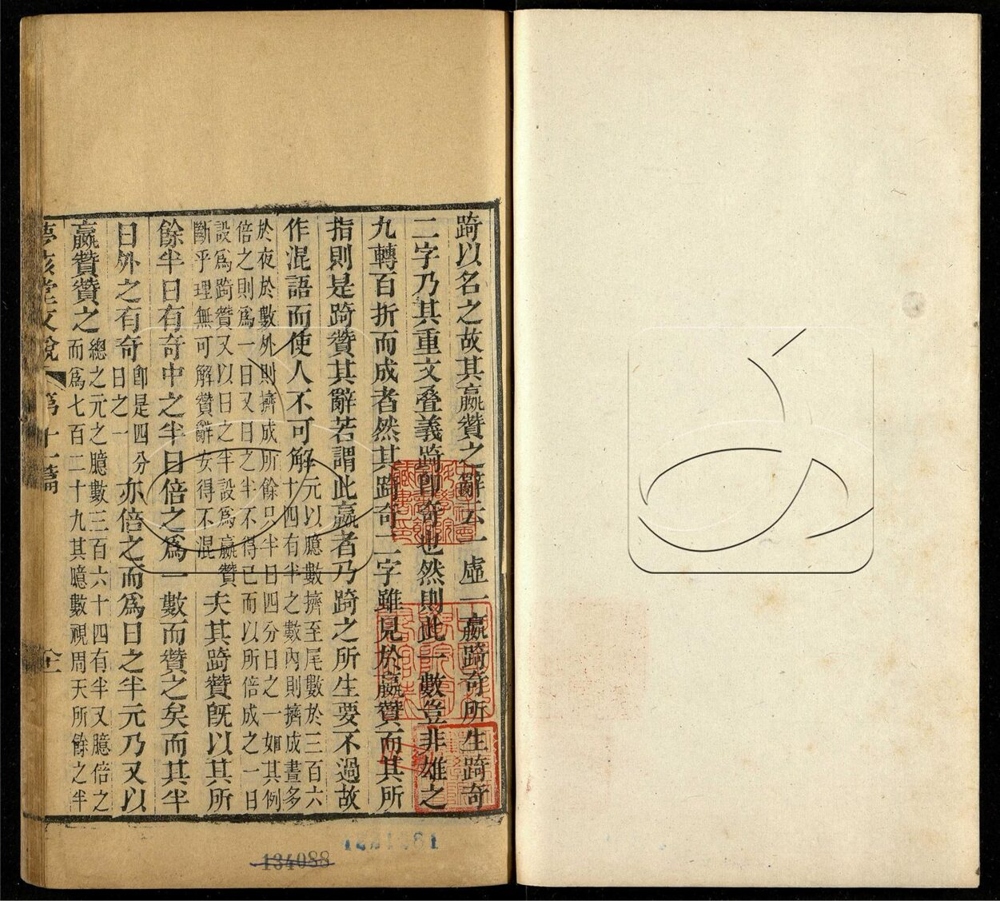 踦以名之故其嬴贊之辭云一虛一嬴踦奇所生踦奇
二字乃其重文叠義踦卽奇也然則此一數豈非雄之
九轉百折而成者然其踦奇二字雖見於嬴贊而其所
指則是踦贊其辭若謂此嬴者乃踦之所生要不過故
作混語而使人不可解元以臆數擠至尾數於三百六
十四有半之數內則擠成晝多
於夜於數外則擠成所餘只半日四分日之一如其例
倍之則爲一日又日之半不得已而以所倍成之一日
設爲踦贊又以日之半設爲嬴贊
斷乎理無可解贊辭安得不混
夫其踦贊旣以其所
餘半日有奇中之半日倍之爲一數而贊之矣而其半
日外之有奇卽是四分
日之一
亦倍之而爲日之半元乃又以
嬴贊贊之總之元之臆數三百六十四有半又臆倍之
而爲七百二十九其臆數視周天所餘之半
堂文說
第十一篇
134088